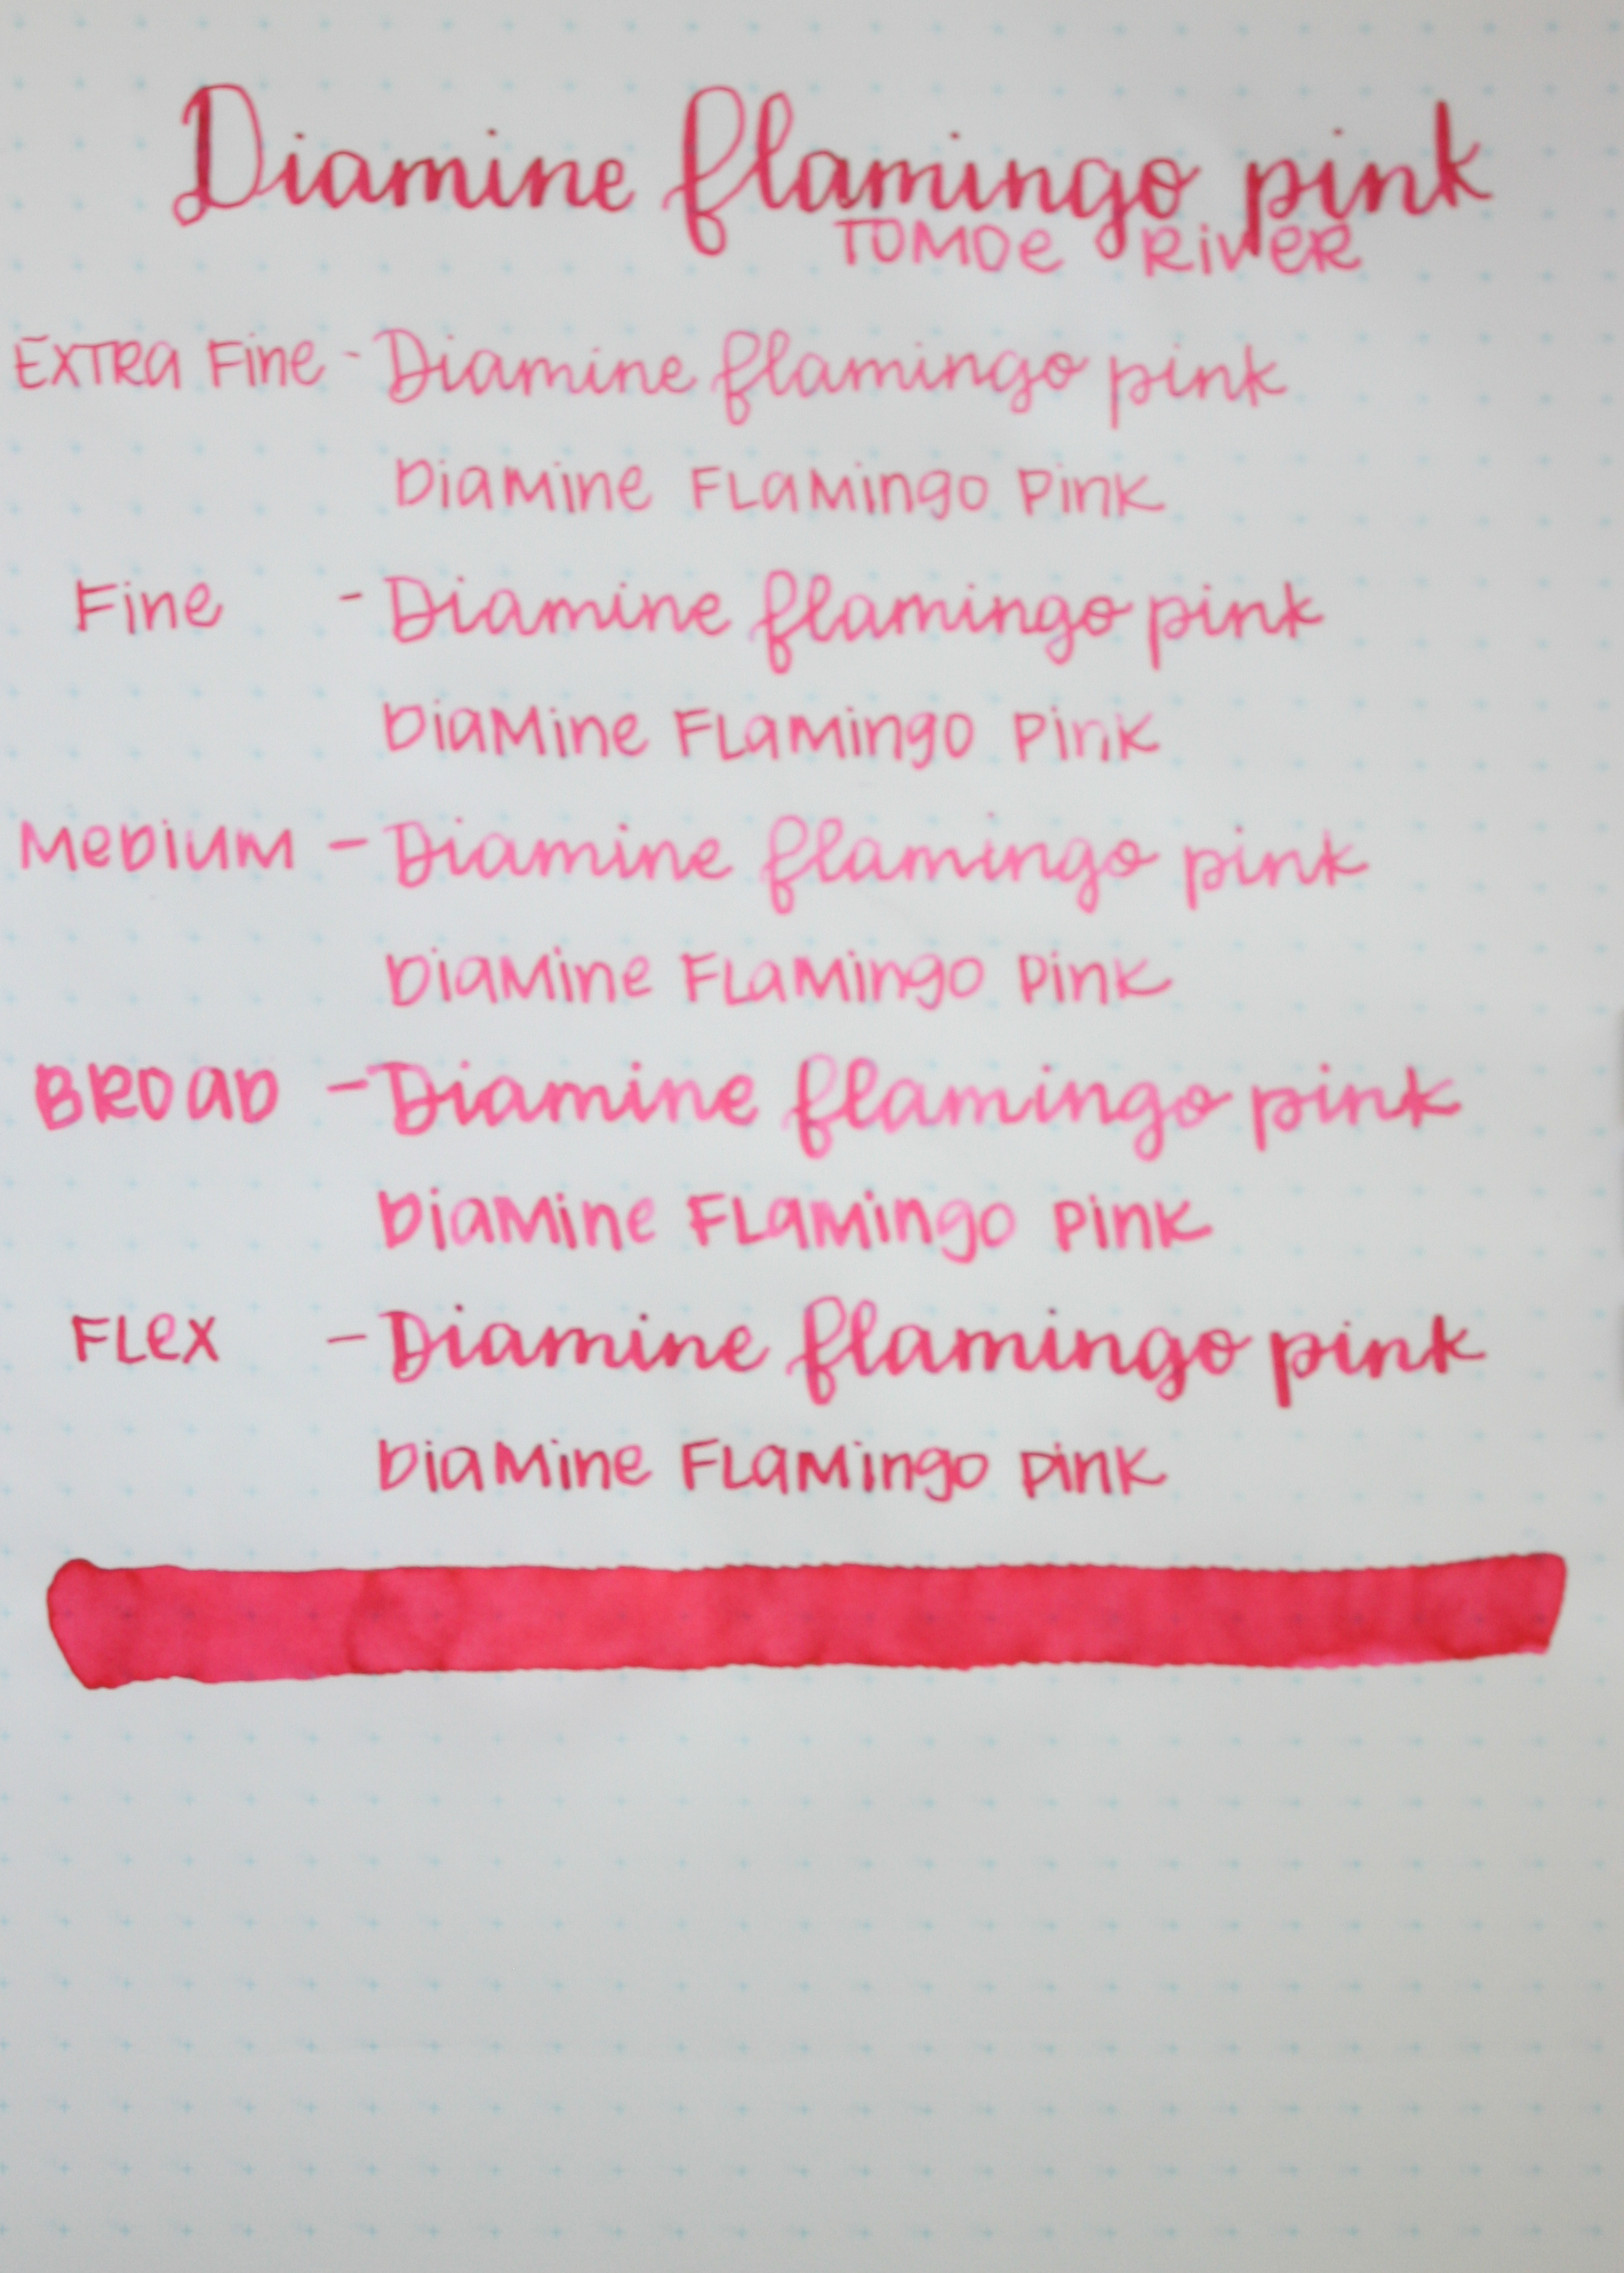 Diamine flamingo pink
TOMOe RiveR
EXTRa Fine - Diamine flamingo pink
DiaMine FLaMingo Pink
Fine - Diamine flamingo pink
DiaMine FLaMingo Pink
MeDiuM - Diamine flamingo pink
DiaMine FLaMingo Pink
BROaD - Diamine flamingo pink
DiaMine FLaMingo Pink
FLeX - Diamine flamingo pink
DiaMine FLaMingo Pink